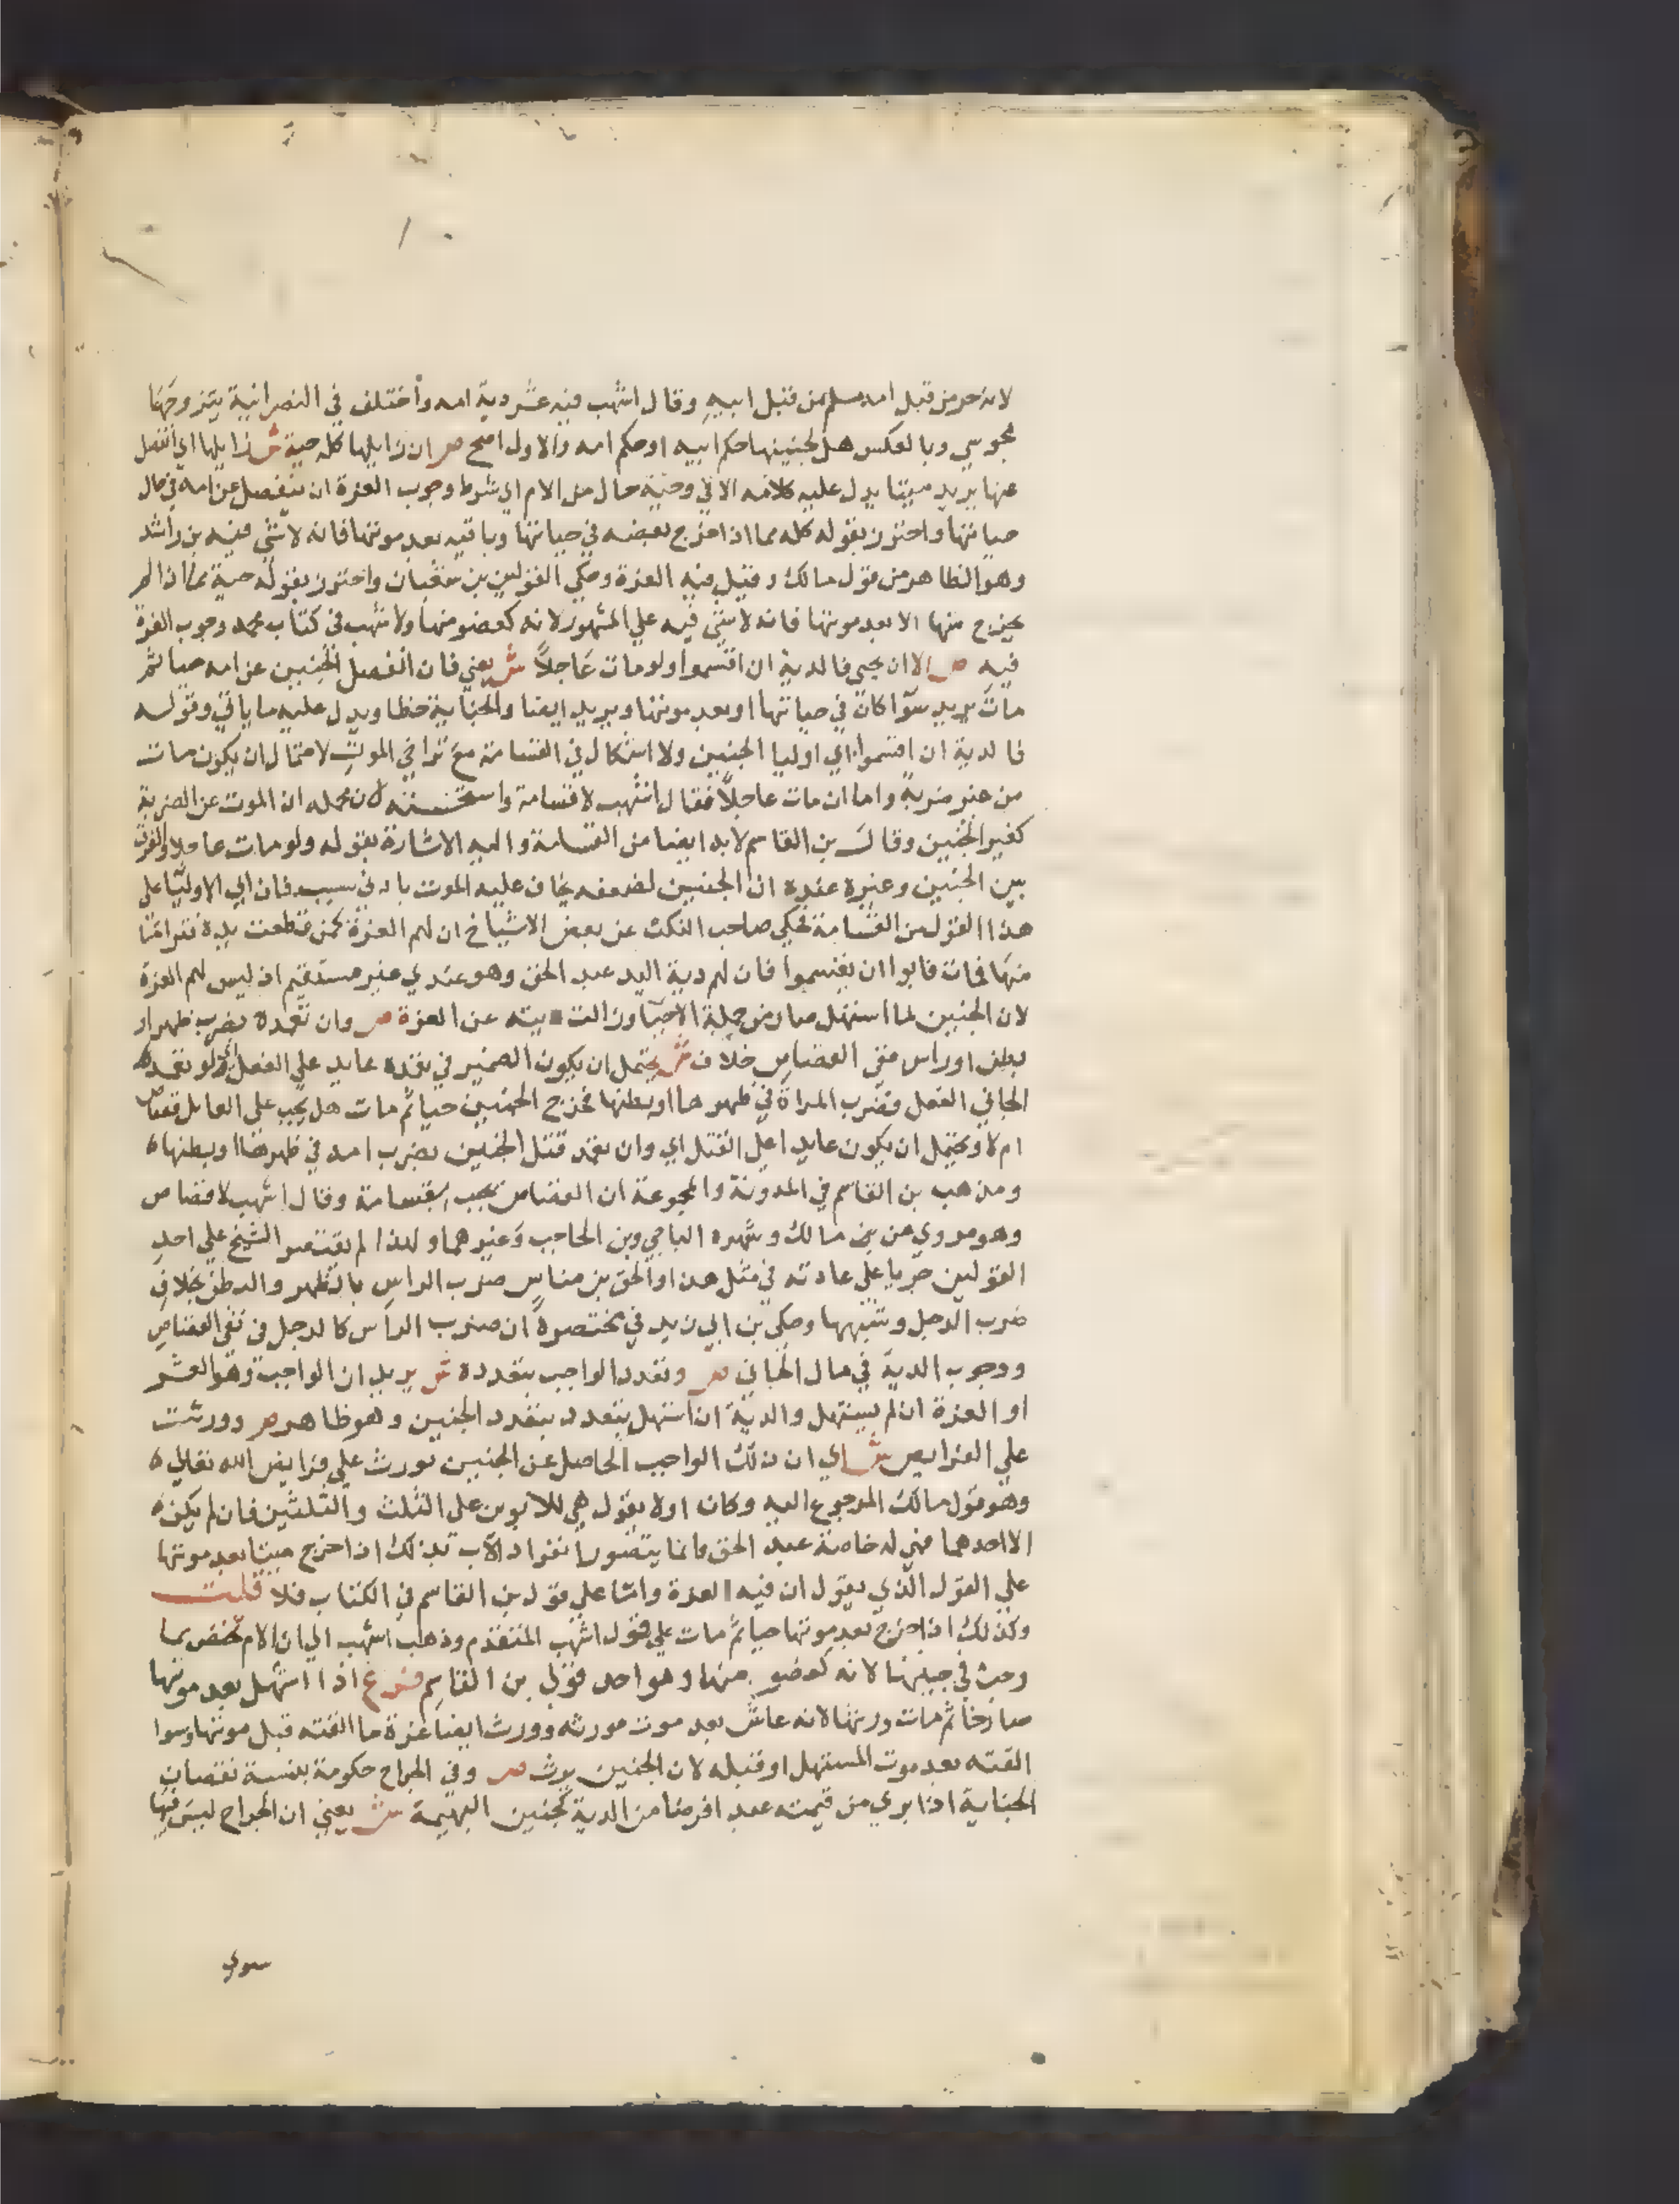 لانه حر من قبل امه مسلم من قبل ابيه وقال اشهب فيه عشر دية امه واختلف في النصرانية يتزوجها
مجوسي وبالعكس هل لجنينها حكم ابيه او حكم امه والاول اصح ص ان زايلها كله حية ش زايلها اي انفصل
عنها يريد ميتا يدل عليه كلامه الاتي وحية حال من الام اي شرط وجوب الغرة ان ينفصل عن امه في حال
حياتها واحترز بقوله كله مما اذا خرج بعضه في حياتها وباقيه بعد موتها فانه لا شي فيه بن راشد
وهو الظاهر من قول مالك وقيل فيه الغرة وحكي القولين بن شعبان واحترز بقوله حية مما اذا لم
يخرج منها الا بعد موتها فانه لا شي فيه علي المشهور لانه كعضو منها ولاشهب في كتاب محمد وجوب الغرة
فيه ص الا ان يحيى فالدية ان اقسموا ولو مات عاجلا ش يعني فان انفصل الجنين عن امه حيا ثم
مات يريد سوا كان في حياتها او بعد موتها ويريد ايضا والجناية خطا ويدل عليه ما ياتي وقوله
فالدية ان اقسموا اي اوليا الجنين ولا اشكال في القسامة مع تراخي الموت لاحتمال ان يكون مات
من غير ضربة واما ان مات عاجلا فقال اشهب لا قسامة واستحسنه لان محمله ان الموت عن الضربة
كغير الجنين وقال بن القاسم لا بد ايضا من القسامة واليه الاشارة بقوله ولو مات عاجلا والفرق
بين الجنين وغيره عنده ان الجنين لضعفه يخاف عليه الموت بادني سبب فان ابي الاوليا علي
هذا القول من القسامة فحكي صاحب النكت عن بعض الاشياخ ان لهم الغرة كمن قطعت يده فترامتا
منها فمات فابوا ان يقسموا فان لهم دية اليد عبد الحق وهو عندي غير مستقيم اذ ليس لهم الغرة
لان الجنين لما استهل صار من جملة الاحيا وزالت ديته عن الغرة ص وان تعمده بضرب ظهر او
بطن او راس ففي القصاص خلاف ش يحتمل ان يكون الضمير في تعمده عايد علي الفعل اي ولو تعمد
الجاني الفعل فضرب المراة في ظهرها او بطنها فخرج الجنين حيا ثم مات هل يجب علي الفاعل قصاص
ام لا ويحتمل ان يكون عايدا علي القتل اي وان تعمد قتل الجنين بضرب امه في ظهرها او بطنها ه
ومذهب بن القاسم في المدونة والمجموعة ان القصاص يجب بقسامة وقال اشهب لا قصاص
وهو مروي عن مالك وشهره الباجي وبن الحاجب وغيرهما ولهذا لم يقتصر الشيخ علي احد
القولين جريا علي عادته في مثل هذا والحق بن مناس ضرب الراس بالظهر والبطن بخلاف
ضرب الرجل وشبهها وحكي بن ابي زيد في مختصره ان ضرب الراس كالرجل في نفي القصاص
ووجوب الدية في مال الجاني ص وتعدد الواجب بتعدده ش يريد ان الواجب وهو العشر
او الغرة ان لم يستهل والدية ان استهل يتعدد بتعدد الجنين وهو ظاهر ص وورثت
علي الفرايض ش اي ان ذلك الواجب الحاصل عن الجنين يورث علي فرايض الله تعالي ه
وهو قول مالك المرجوع اليه وكان اولا يقول هي للابوين علي الثلث والثلثين فان لم يكن
الا احدهما فهي له خاصة عبد الحق وانما يتصور انفراد الاب بذلك اذا خرج ميتا بعد موتها
علي القول الذي يقول ان فيه الغرة واما علي قول بن القاسم في الكتاب فلا قلت
وكذلك اذا خرج بعد موتها حيا ثم مات علي قول اشهب المتقدم وذهب اشهب الي ان الام تختص بما
وجب في جنينها لانه كعضو منها وهو احد قولي بن القاسم فرع اذا استهل بعد موتها
صارخا ثم مات ورثها لانه عاش بعد موت مورثه وورث ايضا غرة ما القته قبل موتها وسوا
القته بعد موت المستهل او قبله لان الجنين يرث ص وفي الجراح حكومة بنسبة نقصان
الجناية اذا بري من قيمته عبدا فرضا من الدية كجنين البهيمة ش يعني ان الجراح ليس فيها
سوي